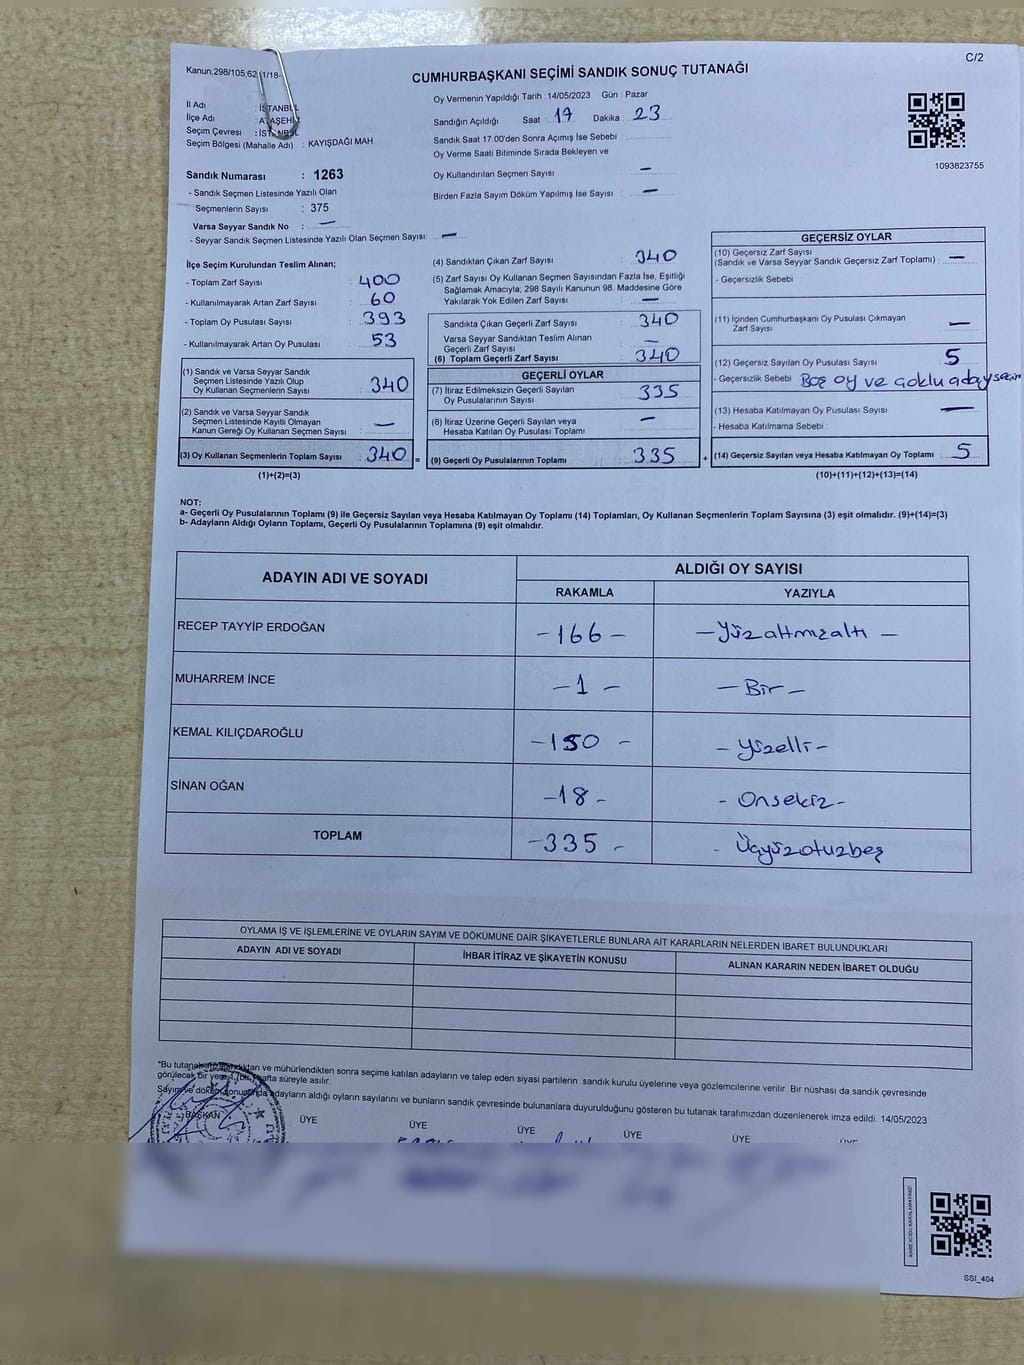 Kanun;298/105,62 1/18-
C/2
CUMHURBAŞKANI SEÇİMİ SANDIK SONUÇ TUTANAĞI
İl Adı : İSTANBUL
İlçe Adı : ATAŞEHİ
Seçim Çevresi : İSTANBUL
Seçim Bölgesi (Mahalle Adı) : KAYIŞDAĞI MAH
Oy Vermenin Yapıldığı Tarih :14/05/2023 Gün : Pazar
Sandığın Açıldığı Saat 17 Dakika : 23
Sandık Saat 17:00'den Sonra Açımış İse Sebebi :
Oy Verme Saati Bitiminde Sırada Bekleyen ve
Oy Kullandırılan Seçmen Sayısı : —
Birden Fazla Sayım Döküm Yapılmış İse Sayısı : —
1093823755
Sandık Numarası : 1263
- Sandık Seçmen Listesinde Yazılı Olan
Seçmenlerin Sayısı : 375
Varsa Seyyar Sandık No : —
- Seyyar Sandık Seçmen Listesinde Yazılı Olan Seçmen Sayısı: —
İlçe Seçim Kurulundan Teslim Alınan;
- Toplam Zarf Sayısı : 400
- Kullanılmayarak Artan Zarf Sayısı : 60
- Toplam Oy Pusulası Sayısı : 393
- Kullanılmayarak Artan Oy Pusulası : 53
(1) Sandık ve Varsa Seyyar Sandık
Seçmen Listesinde Yazılı Olup
Oy Kullanan Seçmenlerin Sayısı : 340
(2) Sandık ve Varsa Seyyar Sandık
Seçmen Listesinde Kayıtlı Olmayan
Kanun Gereği Oy Kullanan Seçmen Sayısı : —
(3) Oy Kullanan Seçmenlerin Toplam Sayısı : 340 =
(1)+(2)=(3)
(4) Sandıktan Çıkan Zarf Sayısı : 340
(5) Zarf Sayısı Oy Kullanan Seçmen Sayısından Fazla İse, Eşitliği
Sağlamak Amacıyla; 298 Sayılı Kanunun 98. Maddesine Göre
Yakılarak Yok Edilen Zarf Sayısı : —
Sandıkta Çıkan Geçerli Zarf Sayısı : 340
Varsa Seyyar Sandıktan Teslim Alınan
Geçerli Zarf Sayısı : —
(6) Toplam Geçerli Zarf Sayısı : 340
GEÇERLİ OYLAR
(7) İtiraz Edilmeksizin Geçerli Sayılan
Oy Pusulalarının Sayısı : 335
(8) İtiraz Üzerine Geçerli Sayılan veya
Hesaba Katılan Oy Pusulası Toplamı : —
(9) Geçerli Oy Pusulalarının Toplamı : 335 +
GEÇERSİZ OYLAR
(10) Geçersiz Zarf Sayısı
(Sandık ve Varsa Seyyar Sandık Geçersiz Zarf Toplamı) : —
- Geçersizlik Sebebi :
(11) İçinden Cumhurbaşkanı Oy Pusulası Çıkmayan
Zarf Sayısı : —
(12) Geçersiz Sayılan Oy Pusulası Sayısı : 5
- Geçersizlik Sebebi : Boş oy ve çoklu aday seçim
(13) Hesaba Katılmayan Oy Pusulası Sayısı : —
- Hesaba Katılmama Sebebi :
(14) Geçersiz Sayılan veya Hesaba Katılmayan Oy Toplamı : 5
(10)+(11)+(12)+(13)=(14)
NOT:
a- Geçerli Oy Pusulalarının Toplamı (9) ile Geçersiz Sayılan veya Hesaba Katılmayan Oy Toplamı (14) Toplamları, Oy Kullanan Seçmenlerin Toplam Sayısına (3) eşit olmalıdır. (9)+(14)=(3)
b- Adayların Aldığı Oyların Toplamı, Geçerli Oy Pusulalarının Toplamına (9) eşit olmalıdır.
ADAYIN ADI VE SOYADI
ALDIĞI OY SAYISI
RAKAMLA YAZIYLA
RECEP TAYYİP ERDOĞAN -166- -Yüzaltmışaltı-
MUHARREM İNCE -1- -Bir-
KEMAL KILIÇDAROĞLU -150- -Yüzelli-
SİNAN OĞAN -18- -Onsekiz-
TOPLAM -335- - Üçyüzotuzbeş
OYLAMA İŞ VE İŞLEMLERİNE VE OYLARIN SAYIM VE DÖKÜMÜNE DAİR ŞİKAYETLERLE BUNLARA AİT KARARLARIN NELERDEN İBARET BULUNDUKLARI
ADAYIN ADI VE SOYADI İHBAR İTİRAZ VE ŞİKAYETİN KONUSU ALINAN KARARIN NEDEN İBARET OLDUĞU
*Bu tutanak ve mühürlendikten sonra seçime katılan adayların ve talep eden siyasi partilerin sandık kurulu üyelerine veya gözlemcilerine verilir Bir nüshası da sandık çevresinde
görülecek bir yere 1 (bir) hafta süreyle asılır.
Sayım ve döküm sonucunda adayların aldığı oyların sayılarını ve bunların sandık çevresinde bulunanlara duyurulduğunu gösteren bu tutanak tarafımızdan düzenlenerek imza edildi. 14/05/2023
BAŞKAN ÜYE ÜYE ÜYE ÜYE ÜYE ÜYE
SSI_404